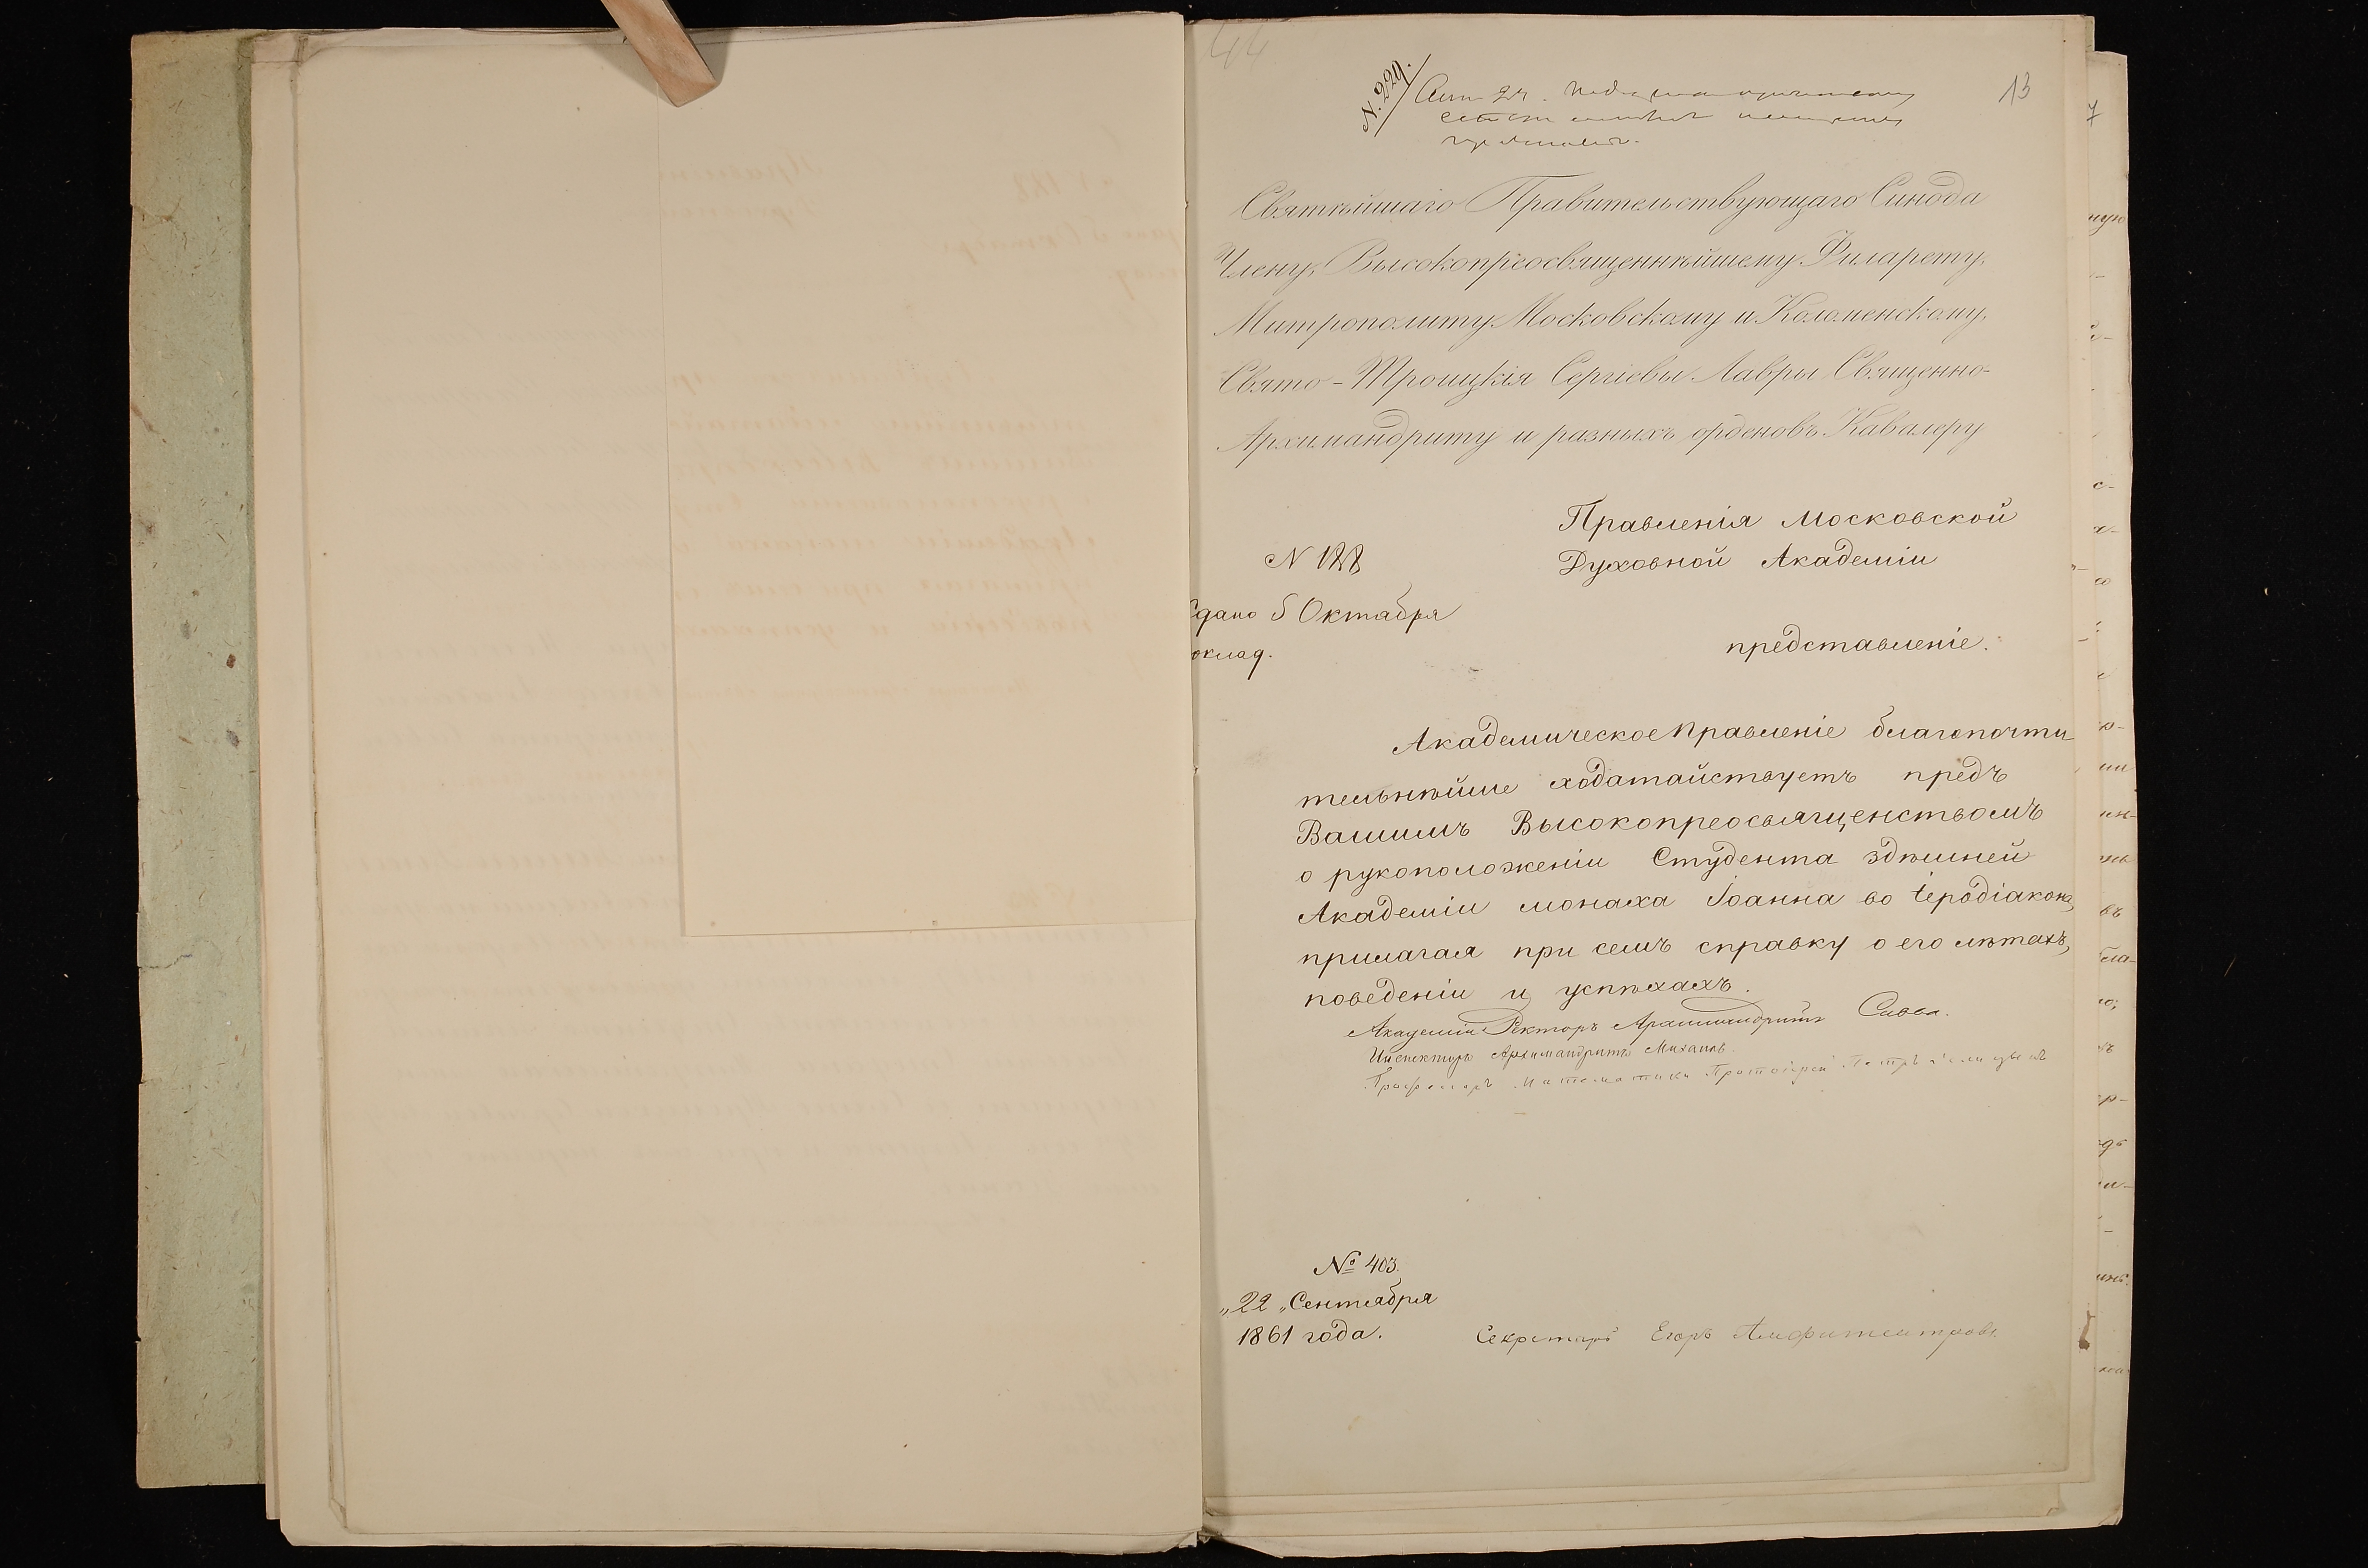 44
13
N. 229.
Святѣйшаго Правительствующаго Синода
Члену, Высокопреосвященнѣйшему Филарету,
Митрополиту Московскому и Коломенскому,
Свято-Троицкія Сергіевы Лавры Священно-
Архимандриту и разныхъ орденовъ Кавалеру
Правленія Московской
Духовной Академіи
N 188
Сдано 5 Октября
оклад.
представленіе.
Академическое Правленіе благопочти-
тельнѣйше ходатайствуетъ предъ
Вашимъ Высокопреосвященствомъ
о рукоположеніи Студента здѣшней
Академіи монаха Іоанна во іеродіакона,
прилагая при семъ справку о его лѣтахъ,
поведеніи и успѣхахъ.
Академіи Ректоръ Архимандритъ Савва.
Инспекторъ Архимандритъ Михаилъ.
Профессоръ Математики Протоіерей Петръ
№ 403.
„22„ Сентября
1861 года.
Секретарь Егоръ Амфитеатровъ.